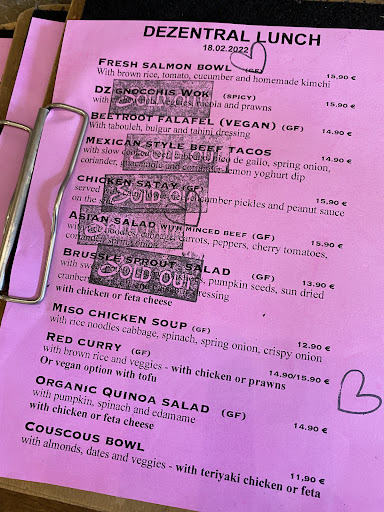 DEZENTRAL LUNCH
18.02.2022
FRESH SALMON BOWL (GF) 15,90 €
With brown rice, tomato, cucumber and homemade kimchi
DZ GNOCCHIS WOK (SPICY) 15.90 €
with veggies, rucola and prawns
SOLD OUT
BEETROOT FALAFEL (VEGAN) (GF) 14.90 €
With tabouleh, bulgur and tahini dressing
MEXICAN STYLE BEEF TACOS 14.90 €
with slow cooked beef, cabbage, pico de gallo, spring onion,
coriander, guacamole and coriander lemon yoghurt dip
CHICKEN SATAY (GF) 15,90 €
served cucumber pickles and peanut sauce
on the
SOLD OUT
ASIAN SALAD WITH MINCED BEEF (GF) 15.90 €
with rice noodles, cabbage, carrots, peppers, cherry tomatoes,
coriander, spring onion
BRUSSLE SPROUT SALAD (GF) 13.90 €
with pumpkin seeds, sun dried
cranberries dressing
SOLD OUT
with chicken or feta cheese
MISO CHICKEN SOUP (GF) 12.90 €
with rice noodles cabbage, spinach, spring onion, crispy onion
RED CURRY (GF) 14.90/15.90 €
with brown rice and veggies - with chicken or prawns
Or vegan option with tofu
ORGANIC QUINOA SALAD (GF) 14.90 €
with pumpkin, spinach and edamame
with chicken or feta cheese
COUSCOUS BOWL 11,90 €
with almonds, dates and veggies - with teriyaki chicken or feta